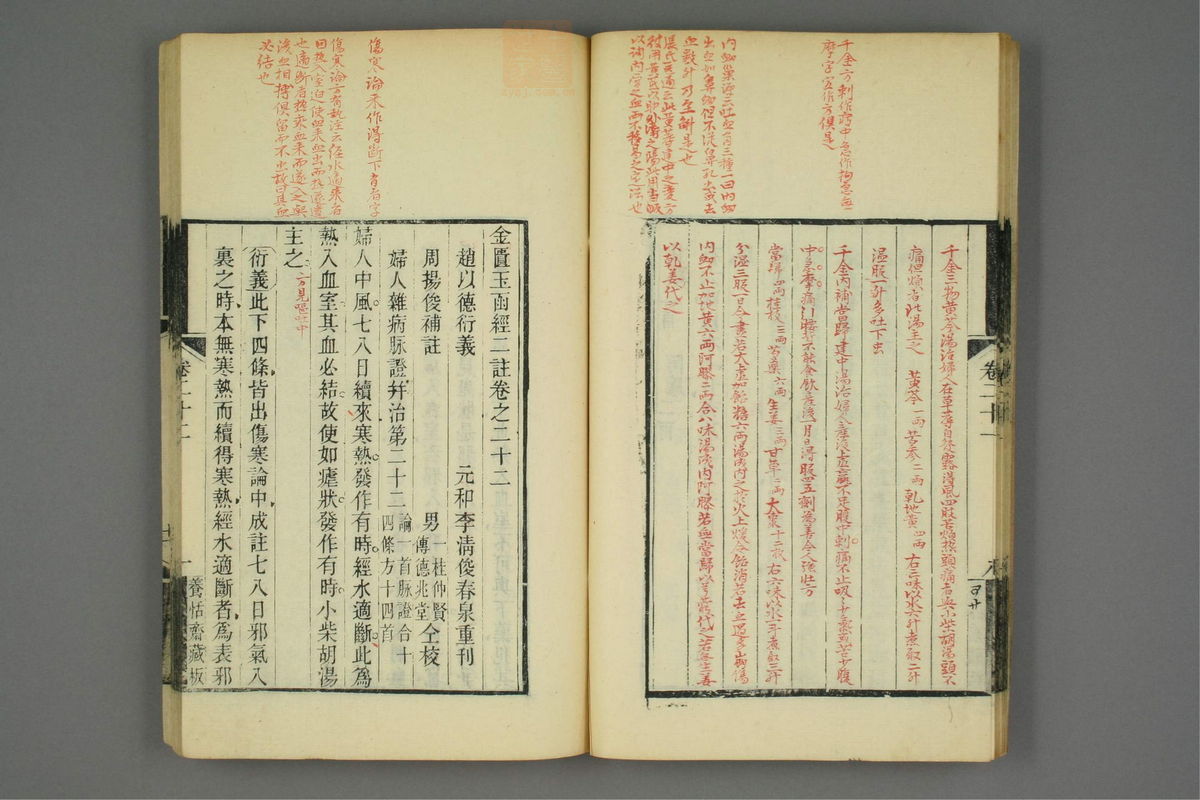 千金三物黃芩湯治婦人在草蓐自發露得風四肢苦煩熱頭痛者與小柴胡湯頭不
痛但煩者此湯主之 黃芩一兩 苦參二兩 乾地黃四兩 右三味以水六升煮取二升
溫服一升多吐下虫
千金內補當歸建中湯治婦人產後虛羸不足腹中刺痛不止吸吸少氣或苦少腹
中急摩痛引腰背不能食飲產後一月日得服四五劑為善令人強壯方
當歸四兩 桂枝三兩 芍藥六兩 生姜三兩 甘草二兩 大棗十二枚 右六味以水一斗煮取三升
分溫三服一日令盡若大虛加飴糖六兩湯成內之於火上煖令飴消若去血過多崩傷
內衂不止加地黃六兩阿膠二兩合八味湯成內阿膠若無當歸以芎藭代之若無生姜
以乾姜代之
千金方刺作㽲中急作拘急無
摩字宜從方俱是
內衂巢源云吐血有三種一曰內衂
出血如鼻衂但不從鼻孔出或去
血數升乃至斛是也
卷二十一
金匱玉函經二註卷之二十二
趙以德衍義 元和李清俊春泉重刊
周揚俊補註 男一桂仲賢
傳德兆堂 仝校
婦人雜病脉證并治第二十二 論一首脉證合十
四條方十四首
婦人中風七八日續來寒熱發作有時經水適斷此爲
熱入血室其血必結故使如瘧狀發作有時小柴胡湯
主之 方見嘔吐中
衍義此下四條皆出傷寒論中成註七八日邪氣入
裏之時本無寒熱而續得寒熱經水適斷者爲表邪
傷寒論來作得斷下有者字
必結也
卷二十二
養恬齋藏板